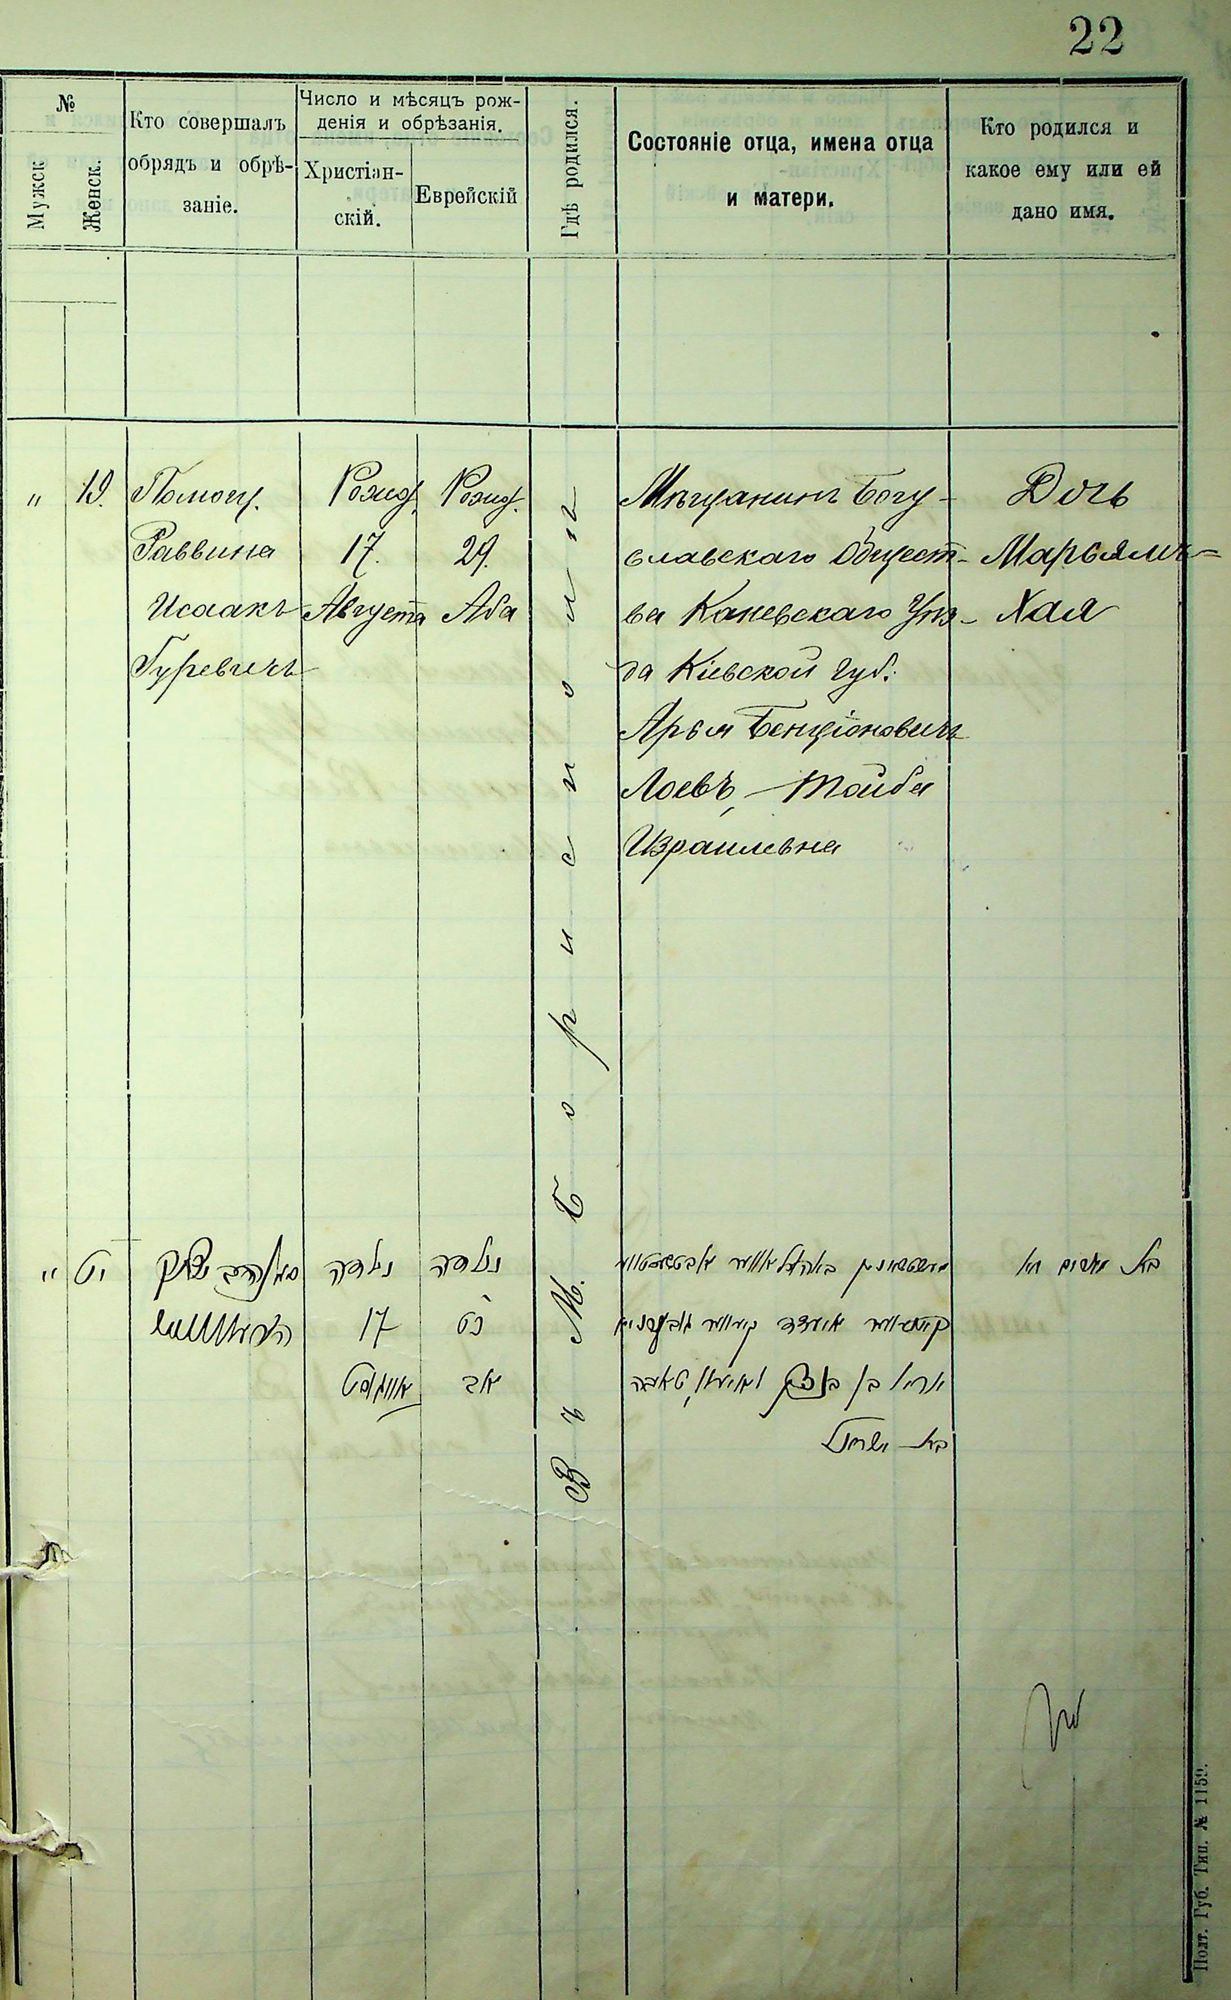 22
№
Мужск
Женск.
Кто совершалъ
обрядъ и обрѣ-
заніе.
Число и мѣсяцъ рож-
денія и обрѣзанія.
Христіан-
скій.
Еврейскій
Гдѣ родился.
Состояніе отца, имена отца
и матери.
Кто родился и
какое ему или ей
дано имя.
" 19.
Помощ.
Раввина
Исаакъ
Гуревичъ
Рожд.
17.
Августа
Рожд.
29.
Аба
Въ М. Борисполи
Мѣщанинъ Богу-
славскаго Общест-
ва Каневскаго Уѣз-
да Кіевской губ.
Арья Бенціоновичъ
Лоевъ, Тойба
Израилевна
Дочь
Марьямъ-
Хая
" יט
נולדה
17
אוגוסט
נולדה
כט
אב
בת ישראל
בת מרים חיא
Полт. Губ. Тип. № 1159.